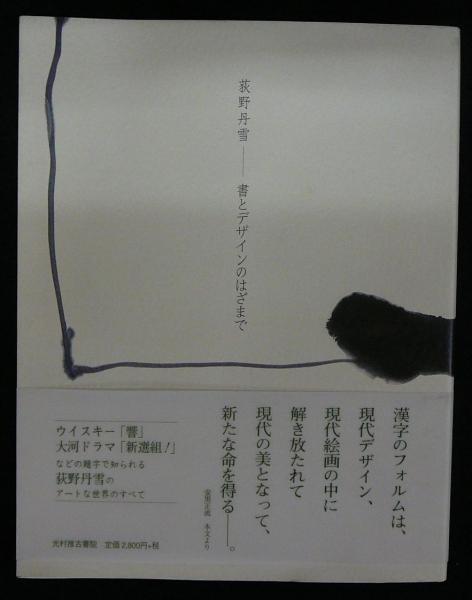 荻野丹雪――書とデザインのはざまで
漢字のフォルムは、
現代デザイン、
現代絵画の中に
解き放たれて
現代の美となって、
新たな命を得る――。
本文より
ウイスキー「響」
大河ドラマ「新選組!」
などの題字で知られる
荻野丹雪の
アートな世界のすべて
光村推古書院 定価2,800円+税